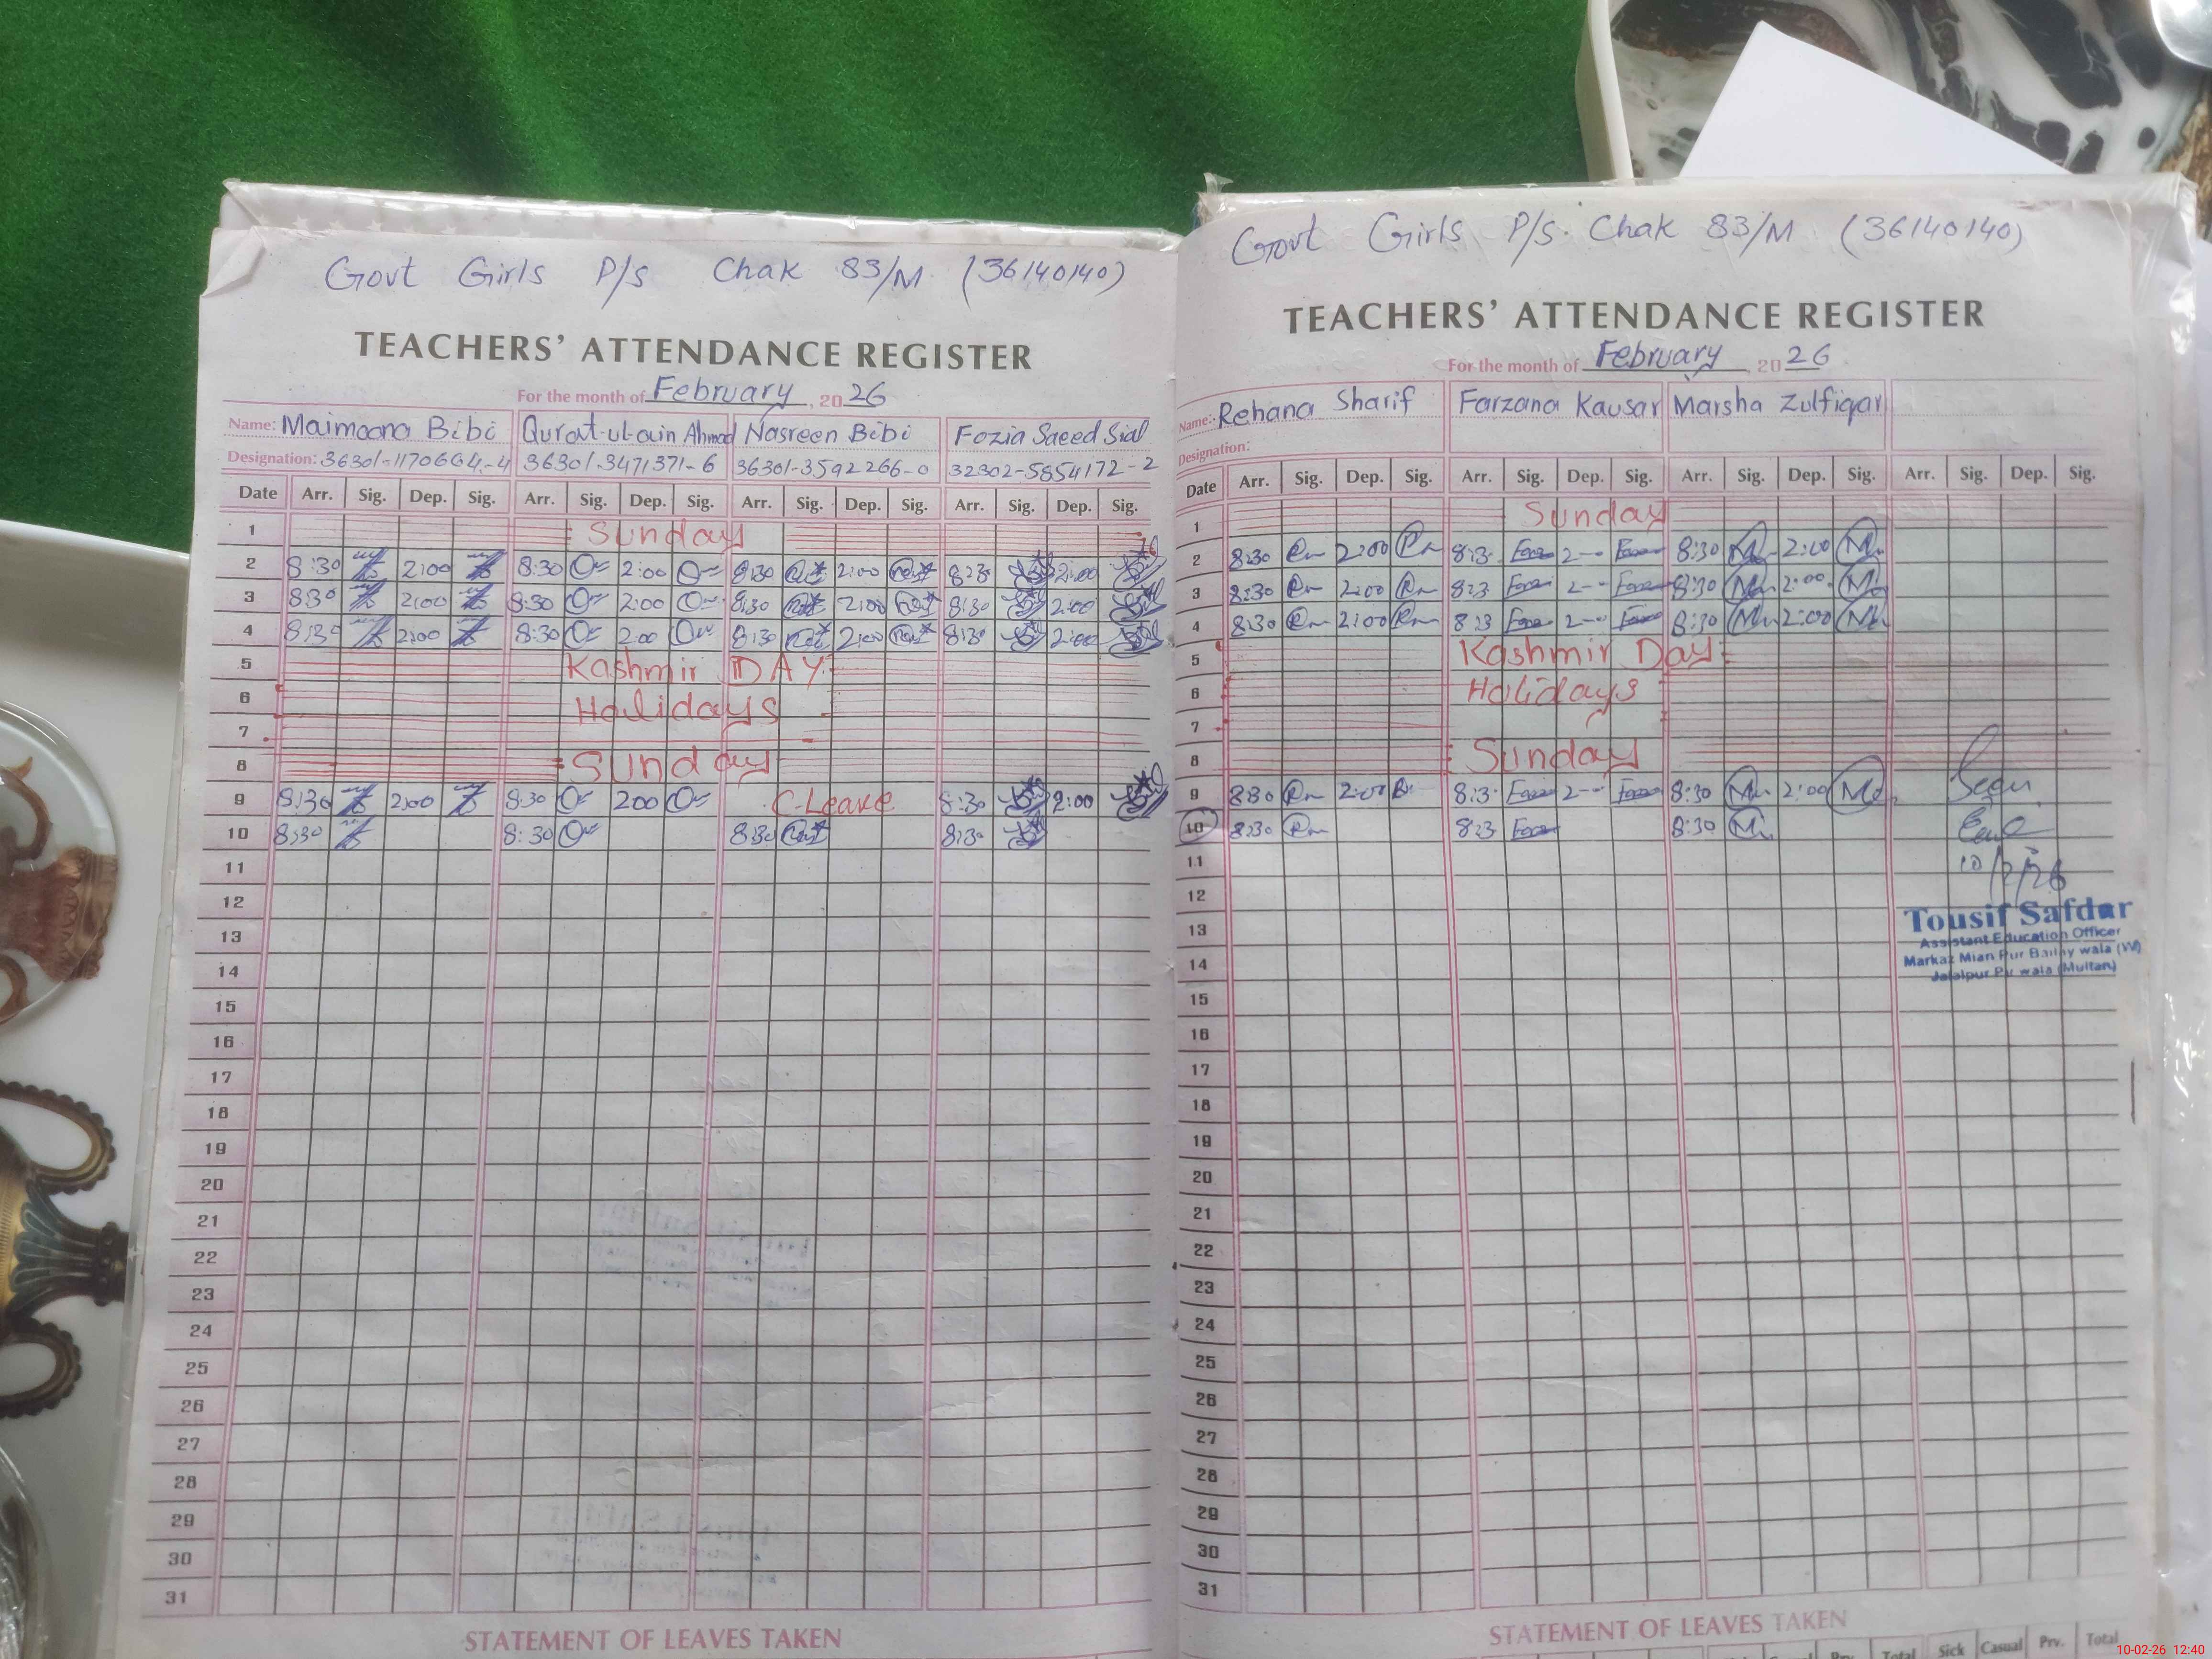 Govt Girls P/s Chak 83/M (36140140)
TEACHERS' ATTENDANCE REGISTER
For the month of February, 2026
Name: Maimoona Bibi Qurat-ul-ain Ahmad Nasreen Bibi Fozia Saeed Sial
Designation: 36301-1170664-4 36301-3471371-6 36301-3592266-0 32302-5854172-2
Date Arr. Sig. Dep. Sig. Arr. Sig. Dep. Sig. Arr. Sig. Dep. Sig. Arr. Sig. Dep. Sig.
1 Sunday
2 8:30 2:00 8:30 2:00 8:30 2:00 8:30 2:00
3 8:30 2:00 8:30 2:00 8:30 2:00 8:30 2:00
4 8:30 2:00 8:30 2:00 8:30 2:00 8:30 2:00
5 Kashmir DAY
6 Holidays
7
8 Sunday
9 8:30 2:00 8:30 200 C-Leave 8:30 2:00
10 8:30 8:30 8:30 8:30
11
12
13
14
15
16
17
18
19
20
21
22
23
24
25
26
27
28
29
30
31
STATEMENT OF LEAVES TAKEN
Govt Girls P/S. Chak 83/M (36140140)
TEACHERS' ATTENDANCE REGISTER
For the month of February, 2026
Name: Rehana Sharif Farzana Kausar Marsha Zulfiqar
Designation:
Date Arr. Sig. Dep. Sig. Arr. Sig. Dep. Sig. Arr. Sig. Dep. Sig. Arr. Sig. Dep. Sig.
1 Sunday
2 8:30 2:00 8:3 2-- 8:30 2:00
3 8:30 2:00 8:3 2-- 8:30 2:00
4 8:30 2:00 8:3 2-- 8:30 2:00
5 Kashmir Day
6 Holidays
7
8 Sunday
9 8:30 2:00 8:3 2-- 8:30 2:00 Seen
10 8:30 8:3 8:30
11 10/2/26
12
Tousif Safdar
13 Assistant Education Officer
14 Markaz Mian Pur wala (W)
Jalalpur Pir wala (Multan)
15
16
17
18
19
20
21
22
23
24
25
26
27
28
29
30
31
STATEMENT OF LEAVES TAKEN
Total Sick Casual Prv. Total
10-02-26 12:40